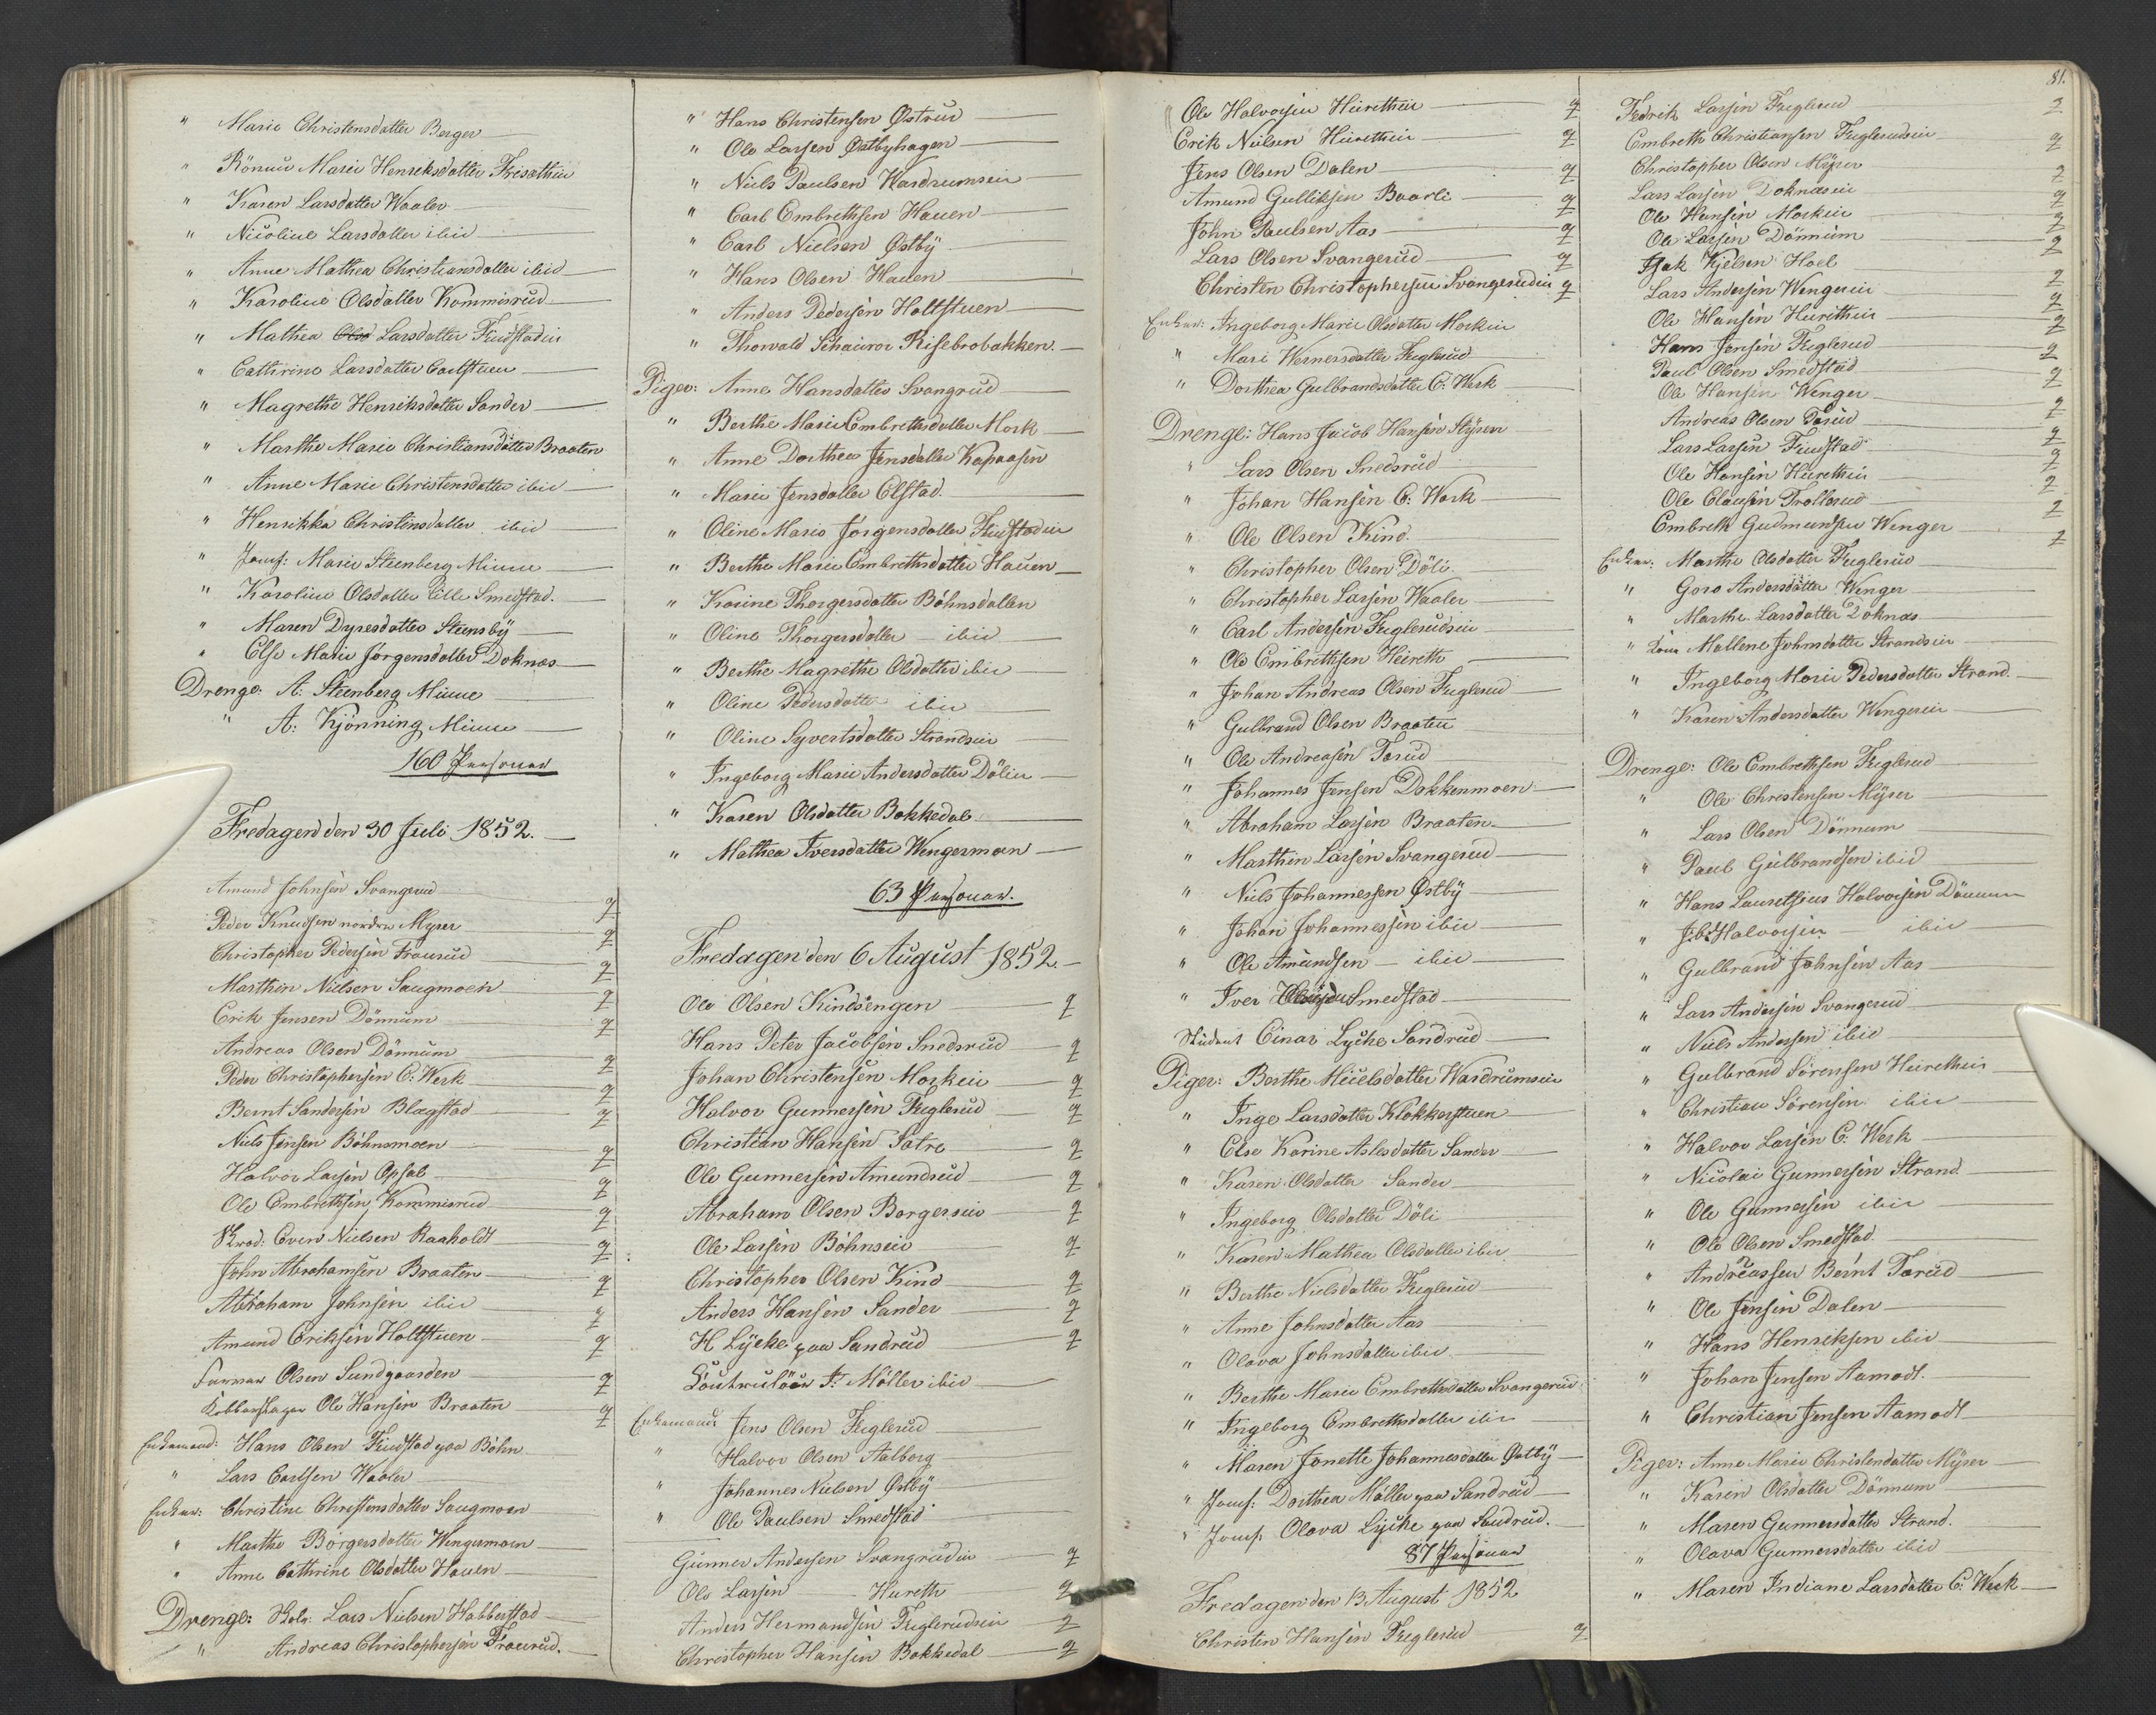 " Marie Christensdatter Berger
" Rönnau Marie Henriksdatter Trisæthin
" Karen Larsdatter Waaler
" Nicoline Larsdatter ibid
" Anne Mathea Christiansdatter ibid
" Karoline Olsdatter Kommisrud
" Mathea Larsdatter Findstadin
" Cathrine Larsdatter Carlstuen
" Magrethe Henriksdatter Sander
" Marthe Marie Christiansdatter Braaten
" Anne Marie Christensdatter ibid
" Henrikka Christinsdatter ibid
" Jomf: Marie Steenberg Minne
" Karoline Olsdatter Lille Smedstad.
" Maren Dyresdatter Steensbÿ
" Else Marie Jørgensdatter Doknæs
Drenge: A: Steenberg Minne
" A: Kjönning Minne
160 Personer
Fredagen den 30 Juli 1852.
Amund Johnsen Svangrud q
Peder Knudsen nordre Myrer q
Christopher Pedersen Fraurud q
Marthin Nielsen Saugmoen q
Erik Jensen Dönnum q
Andreas Olsen Dönnum q
Peder Christophersen E: Werk q
Bernt Sandersen Blegstad q
Niels Jensen Böhnsmoen q
Halvor Larsen Opsal q
Ole Embrethsen Kommisrud q
Skrod: Even Nielsen Raaholdt q
John Abrahamsen Braaten q
Abraham Johnsen ibid q
Amund Eriksen Holtstuen q
Gunnar Olsen Sundgaarden q
Kobberslager Ole Hansen Braaten q
Enkemænd: Hans Olsen Findstad paa Böhn
" Lars Carlsen Waaler
Enker: Christine Christensdatter Saugmoen
" Marthe Börgersdatter Wengermoen
" Anne Cathrine Olsdatter Hauen
Drenge: Skolr. Lars Nielsen Habberstad
" Andreas Christophersen Fraurud.
" Hans Christensen Østrud
" Ole Larsen Østbyhagen
" Niels Paulsen Wardrumseie
" Carl Embrethsen Hauen
" Carl Nielsen Østbÿ
" Hans Olsen Hauen
" Anders Pedersen Holtstuen
" Thorvald Schairor Risebrobakken.
Piger: Anne Hansdatter Svangrud
" Berthe Marie Embrethsdatter Mork
" Anne Dorthea Jensdatter Kapaasen
" Marie Jensdatter Elstad.
" Oline Marie Jörgensdatter Findstadeie
" Berthe Marie Embrethsdatter Hauen
" Karine Thorgersdatter Böhnsdalen
" Oline Thorgersdatter ibid
" Berthe Magrethe Olsdatter ibid
" Oline Pedersdatter ibid
" Oline Syvertsdatter Strandeie
" Ingeborg Marie Andersdatter Dölin
" Karen Olsdatter Bakkedal
" Mathea Iversdatter Wengermoen
63 Personer.
Fredagen den 6 August 1852.
Ole Olsen Kindsengen q
Hans Peter Jacobsen Snedsrud q
Johan Christensen Morkeie q
Halvor Gunnersen Fuglerud q
Christian Hansen Sætre q
Ole Gunnersen Amundrud q
Abraham Olsen Borgerseie q
Ole Larsen Böhnseie q
Christopher Olsen Kind q
Anders Hansen Sander q
H Lÿcke paa Sandrud q
Contrulöer F. Möller ibid
Enkemænd: Jens Olsen Fuglerud
" Halvor Olsen Aalborg
" Johannes Nielsen Østbÿ
" Ole Paulsen Smedstad
Gunner Andersen Svangrudeie q
Ole Larsen Hureth q
Anders Hermandsen Fuglerudeie q
Christopher Hansen Bakkedal q
Ole Halvorsen Hurethin q
Erik Nielsen Hurethin q
Jens Olsen Dalen q
Amund Gulliksen Baarli q
John Paulsen Aas q
Lars Olsen Svangerud q
Christen Christophersen Svangerudeie q
Enker: Ingeborg Marie Olsdatter Morkeie
" Mari Wernersdatter Fuglerud
" Dorthea Gulbrandsdatter E: Werk
Drenge: Hans Jacob Hansen Stÿren
" Lars Olsen Snedsrud
" Johan Hansen E: Werk
" Ole Olsen Kind.
" Christopher Olsen Döli.
" Christopher Larsen Waaler
" Carl Andersen Fuglerudeie
" Ole Embrethsen Hureth
" Johan Andreas Olsen Fuglerud
" Gulbrand Olsen Braaten
" Ole Andreasen Tærud
" Johannes Jensen Dokkenmoen
" Abraham Larsen Braaten
" Marthin Larsen Svangerud
" Niels Johannessen Østbÿ
" Johan Johannessen ibid
" Ole Amundsen ibid
" Iver Smedstad
Student Einar Lycke Sandrud
Piger: Berthe Nielsdatter Wardrumseie
" Inge Larsdatter Klokkerstuen
" Else Karine Aslesdatter Sander
" Karen Olsdatter Sander
" Ingeborg Olsdatter Döli
" Karen Mathea Olsdatter ibid
" Berthe Nielsdatter Fuglerud
" Anne Johnsdatter Aas
" Olava Johnsdatter ibid
" Berthe Marie Embrethsdatter Svangerud
" Ingeborg Embrethsdatter ibid
" Maren Jonette Johannesdatter Østbÿ
" Jomf: Dorthea Möller paa Sandrud
" Jomf: Olava Lÿcke paa Sandrud.
87 Personer
Fredagen den 13 August 1852
Christen Hansen Fuglerud q
81.
Fedrik Larsen Fuglerud q
Embreth Christiansen Fuglerudeie q
Christopher Olsen Mÿrer q
Lars Larsen Doknæseie q
Ole Hansen Morkeie q
Ole Larsen Dönnum q
Isak Kjelsen Hoel q
Lars Andersen Wengereie q
Ole Hansen Hurethin q
Hans Jensen Fuglerud q
Paul Olsen Smedstad q
Ole Hansen Wenger q
Andreas Olsen Tærud q
Lars Larsen Findstad q
Ole Hansen Hurethin q
Ole Clausen Trollerud q
Embreth Gudmundsen Wenger q
Enker: Marthe Olsdatter Fuglerud
" Goro Andersdatter Wenger
" Marthe Larsdatter Doknæs
" Kone Mallene Johnsdatter Strandeie
" Ingeborg Marie Pedersdatter Strand.
" Karen Andersdatter Wengereie
Drenge: Ole Embrethsen Fuglerud
" Ole Christensen Mÿrer
" Lars Olsen Dönnum
" Paul Gulbrandsen ibid
" Hans Lauretsius Halvorsen Dönnum
" Halvorsen ibid
" Gulbrand Johnsen Aas
" Lars Andersen Svangerud
" Niels Andersen ibid
" Gulbrand Sörensen Hurethin
" Christian Sörensen ibid
" Halvor Larsen E: Werk
" Nicolai Gunnersen Strand
" Ole Gunnersen ibid
" Ole Olsen Smedstad.
" Andreassen Bernt Tærud
" Ole Jensen Dalen
" Hans Henriksen ibid
" Johan Jensen Aamodt.
" Christian Jensen Aamodt
Piger: Anne Marie Christensdatter Mÿrer
" Karen Olsdatter Dönnum
" Maren Gunnersdatter Strand.
" Olava Gunnersdatter ibid
" Maren Indiane Larsdatter E: Werk